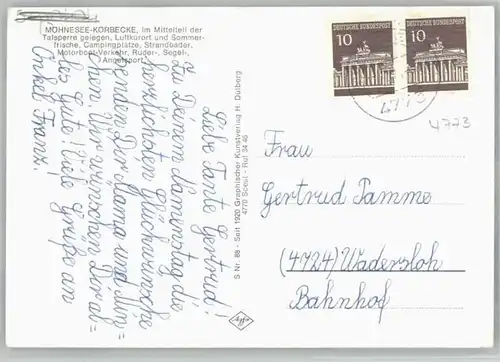 MÖHNESEE-KÖRBECKE, im Mittelteil der
Talsperre gelegen, Luftkurort und Sommer-
frische, Campingplätze, Strandbäder,
Motorboot-Verkehr, Ruder-, Segel-,
Angelsport.
Liebe Tante Gertrud!
Zu Deinem Namenstag die
herzlichsten Glückwünsche
senden Dir Mama und
Wir wünschen Dir al=
les Gute! Viele Grüße an
Onkel Franz.
S Nr. 88 - Seit 1920 Graphischer Kunstverlag H. Dülberg
4770 Soest - Ruf 34 46
agfa
DEUTSCHE BUNDESPOST
10
DEUTSCHE BUNDESPOST
10
4773
Frau
Gertrud Tamme
(4724) Wadersloh
Bahnhof